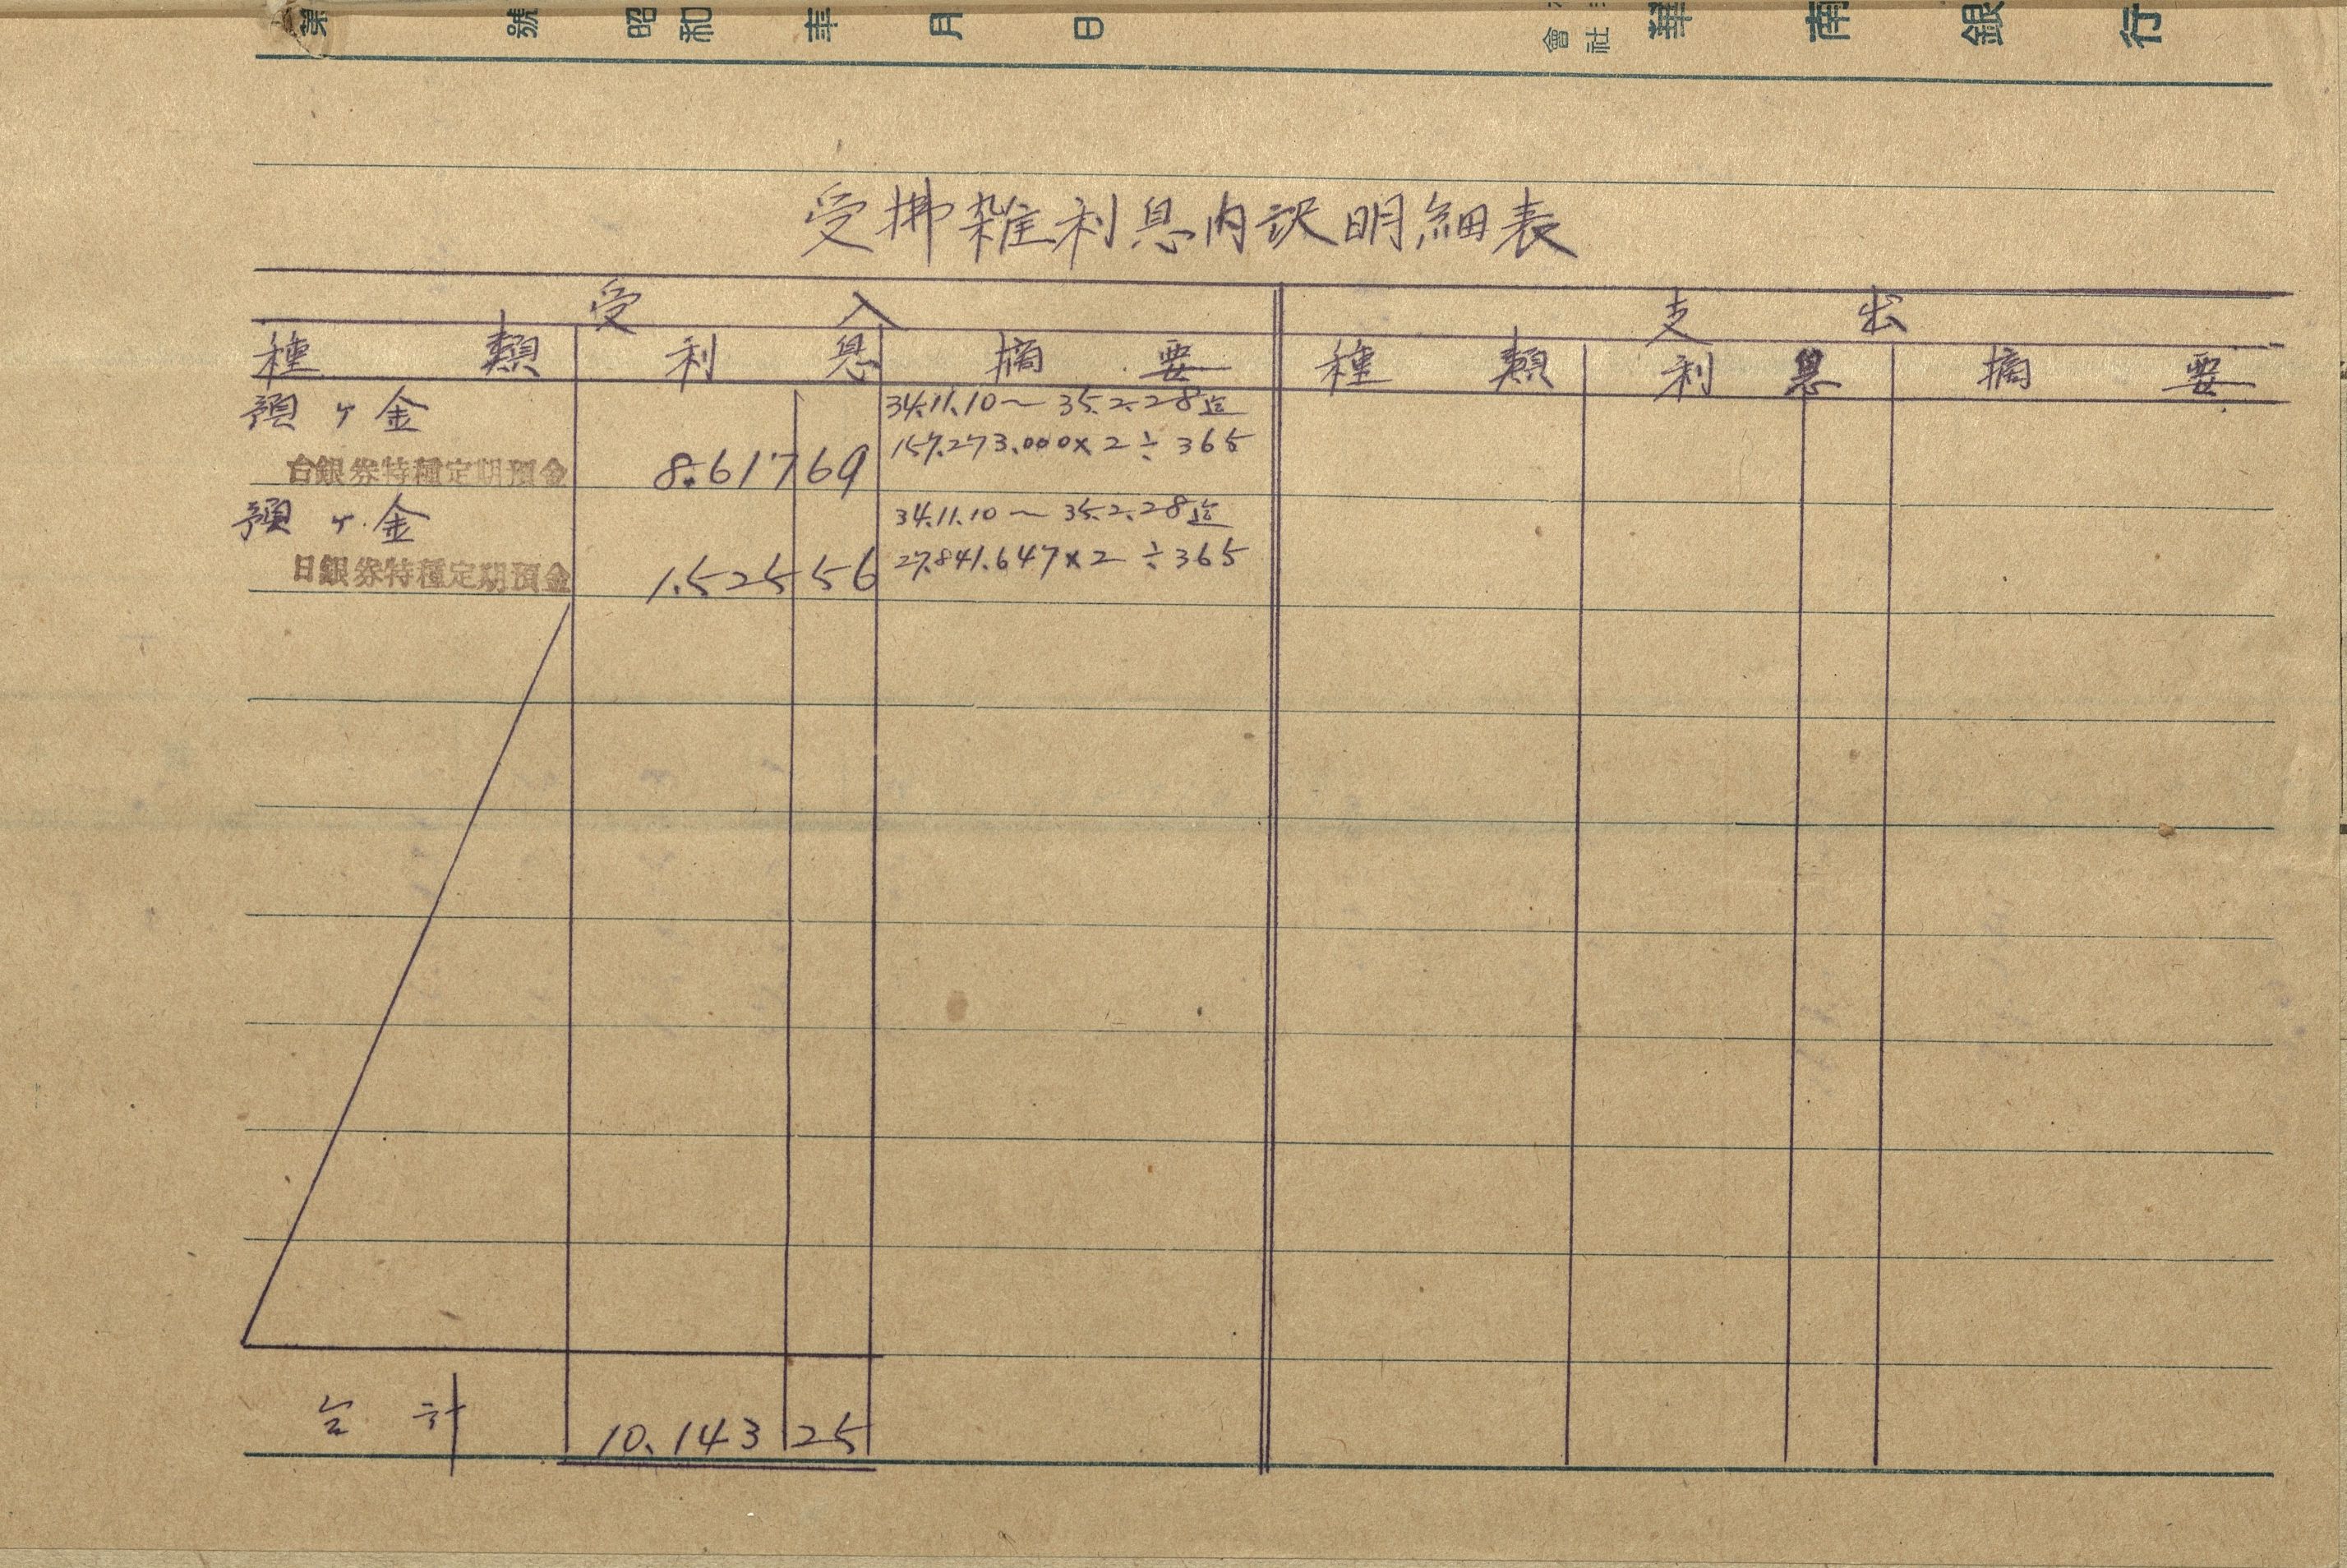 第 號 昭和 年 月 日 會社 華 南 銀 行
受拂雜利息内訳明細表
受 入 支 出
種 類 利 息 摘 要 種 類 利 息 摘 要
預ヶ金 34.11.10〜35.2.28迄
台銀券特種定期預金 8.617 69 157.273.000×2÷365
預ヶ金 34.11.10〜35.2.28迄
日銀券特種定期預金 1.525 56 27.841.647×2÷365
合計 10.143 25